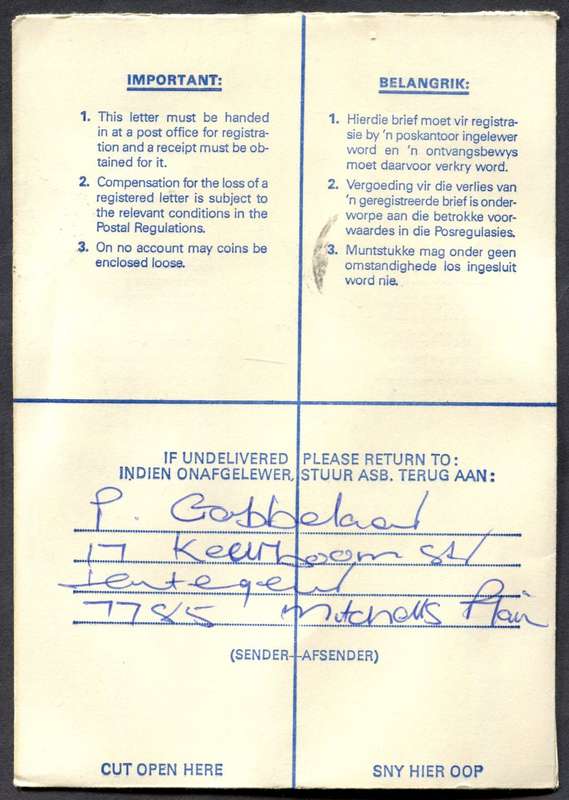 IMPORTANT:
1. This letter must be handed
in at a post office for registra-
tion and a receipt must be ob-
tained for it.
2. Compensation for the loss of a
registered letter is subject to
the relevant conditions in the
Postal Regulations.
3. On no account may coins be
enclosed loose.
BELANGRIK:
1. Hierdie brief moet vir registra-
sie by 'n poskantoor ingelewer
word en 'n ontvangsbewys
moet daarvoor verkry word.
2. Vergoeding vir die verlies van
'n geregistreerde brief is onder-
worpe aan die betrokke voor-
waardes in die Posregulasies.
3. Muntstukke mag onder geen
omstandighede los ingesluit
word nie.
IF UNDELIVERED PLEASE RETURN TO:
INDIEN ONAFGELEWER, STUUR ASB. TERUG AAN:
P. Gabbelaar
17 Keurboom St
Lentegeur
7785 Mitchells Plain
(SENDER–AFSENDER)
CUT OPEN HERE
SNY HIER OOP